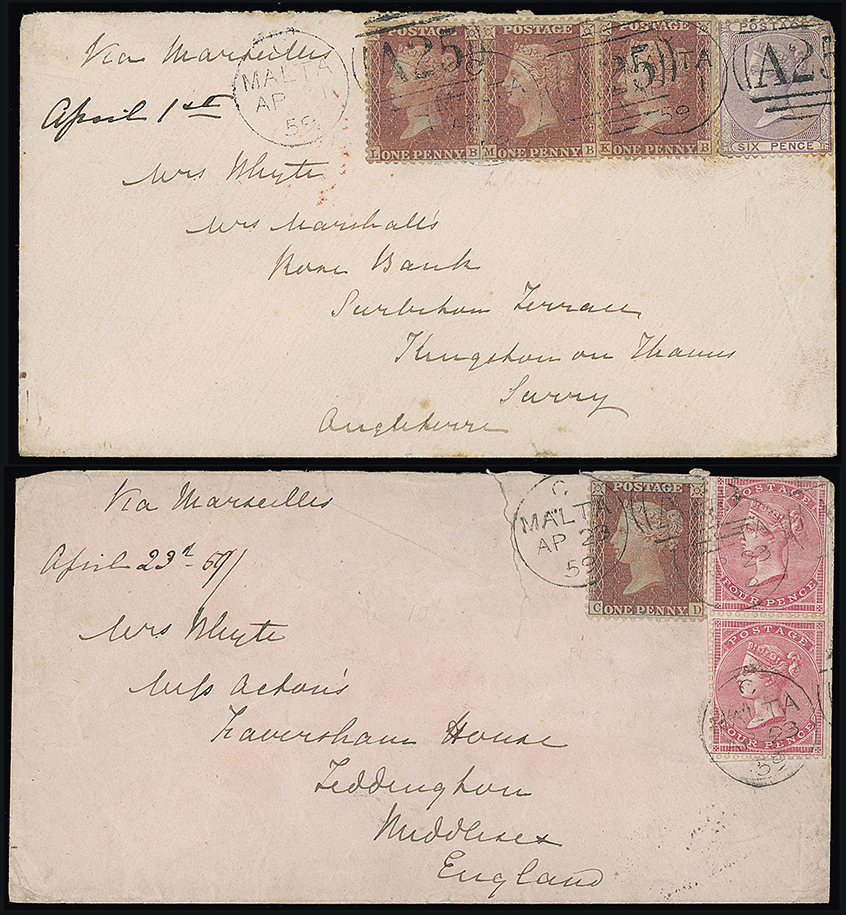 Via Marseilles
April 1st
MALTA
AP 1
59
A25
POSTAGE
L ONE PENNY B
POSTAGE
M ONE PENNY B
POSTAGE
K ONE PENNY B
25
TA
59
POSTAGE
A25
SIX PENCE
Mrs Whyte
Mrs Marshall's
Rose Bank
Surbiton Terrace
Kingston on Thames
Surry
Angleterre
Via Marseilles
April 23rd 59/
C
MALTA
AP 23
59
POSTAGE
C ONE PENNY D
TA
23
FOUR PENCE
POSTAGE
FOUR PENCE
C
MALTA
23
59
Mrs Whyte
Miss Acton's
Faversham House
Teddington
Middlesex
England